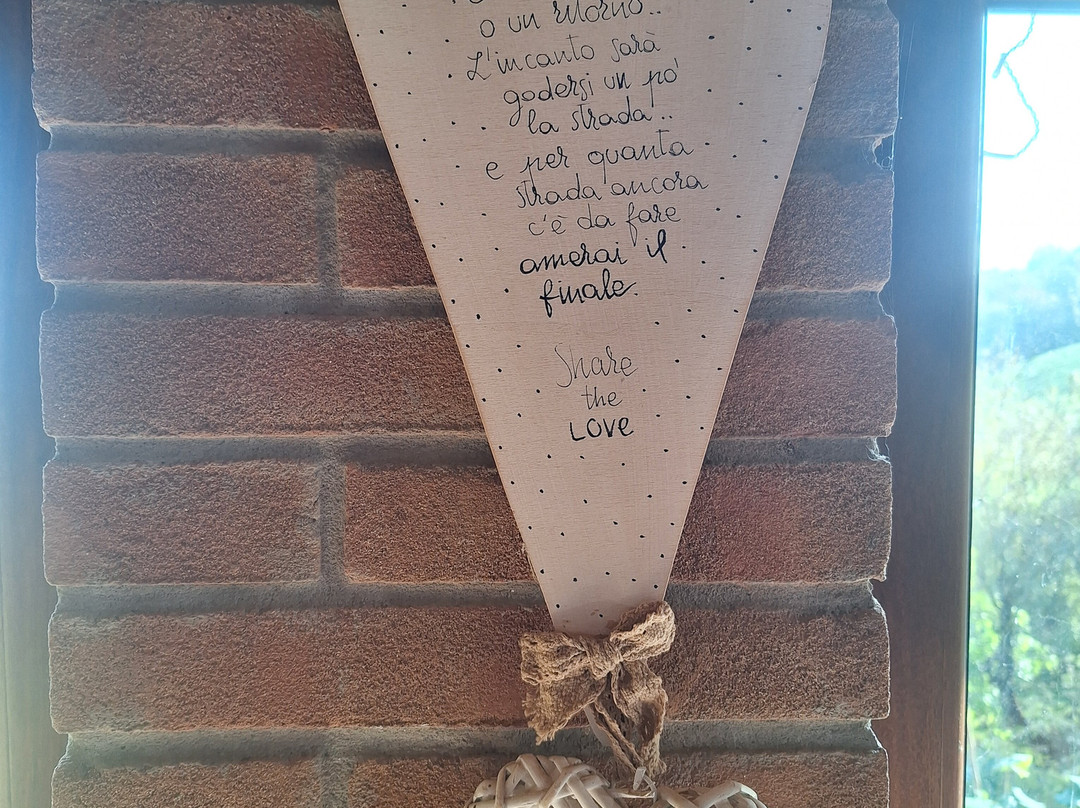 o un ritorno..
L'incanto sarà
godersi un pò
la strada..
e per quanta
strada ancora
c'è da fare
amerai il
finale.
Share
the
LOVE